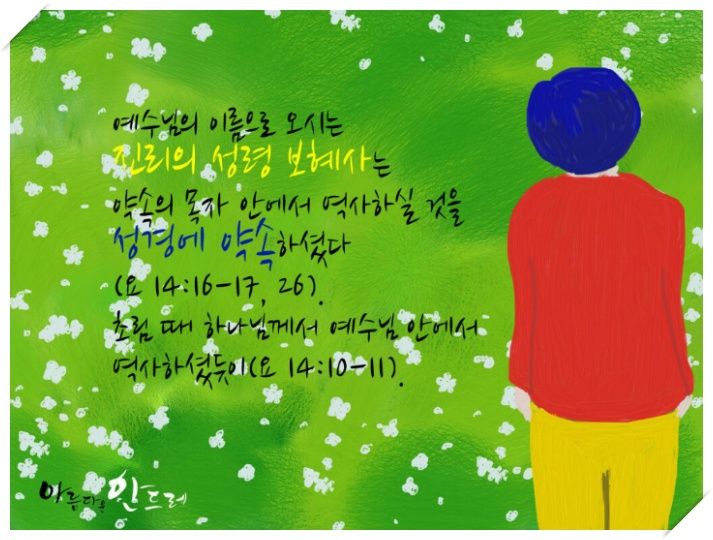 예수님의 이름으로 오시는
진리의 성령 보혜사는
약속의 목자 안에서 역사하실 것을
성경에 약속하셨다
(요 14:16-17, 26).
초림 때 하나님께서 예수님 안에서
역사하셨듯이(요 14:10-11).
아름다운 안드레